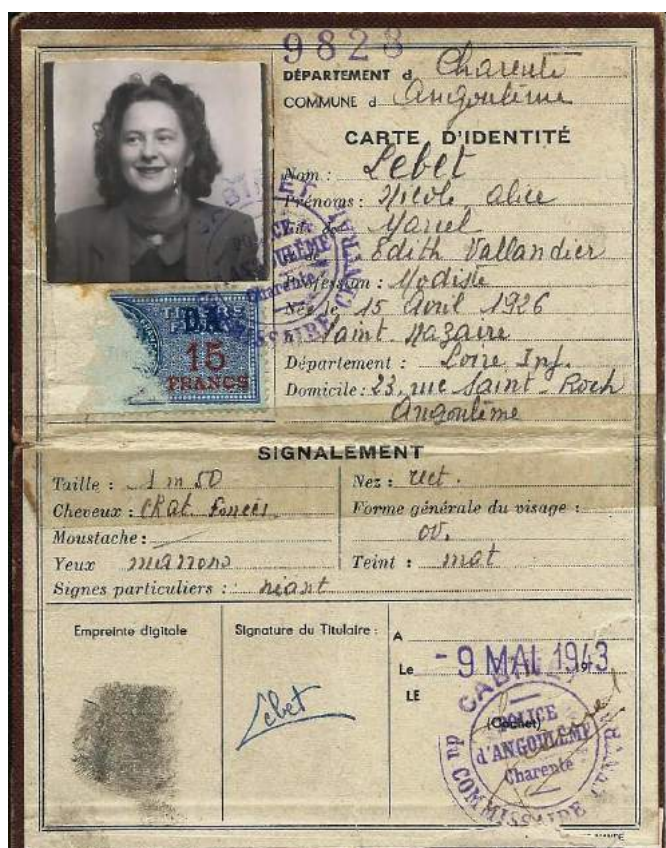 9828
DÉPARTEMENT d Charente
COMMUNE d Angoulême
CARTE D'IDENTITÉ
Nom : Lebet
Prénoms : Nicole alice
Fils de Marcel
Edith Vallandier
Profession : Modiste
Né le 15 Avril 1926
Saint Nazaire
Département : Loire Inf.
Domicile : 23, rue Saint-Roch
Angoulême
15
FRANCS
SIGNALEMENT
Taille : 1 m 50
Cheveux : Chat. foncés
Moustache :
Yeux marrons
Signes particuliers : néant
Nez : rect.
Forme générale du visage :
ov.
Teint : mat
Empreinte digitale
Signature du Titulaire :
Lebet
A
Le - 9 MAI 1943
LE
(Cachet)
CABINET du COMMISSAIRE CENTRAL
POLICE
d'ANGOULÊME
Charente